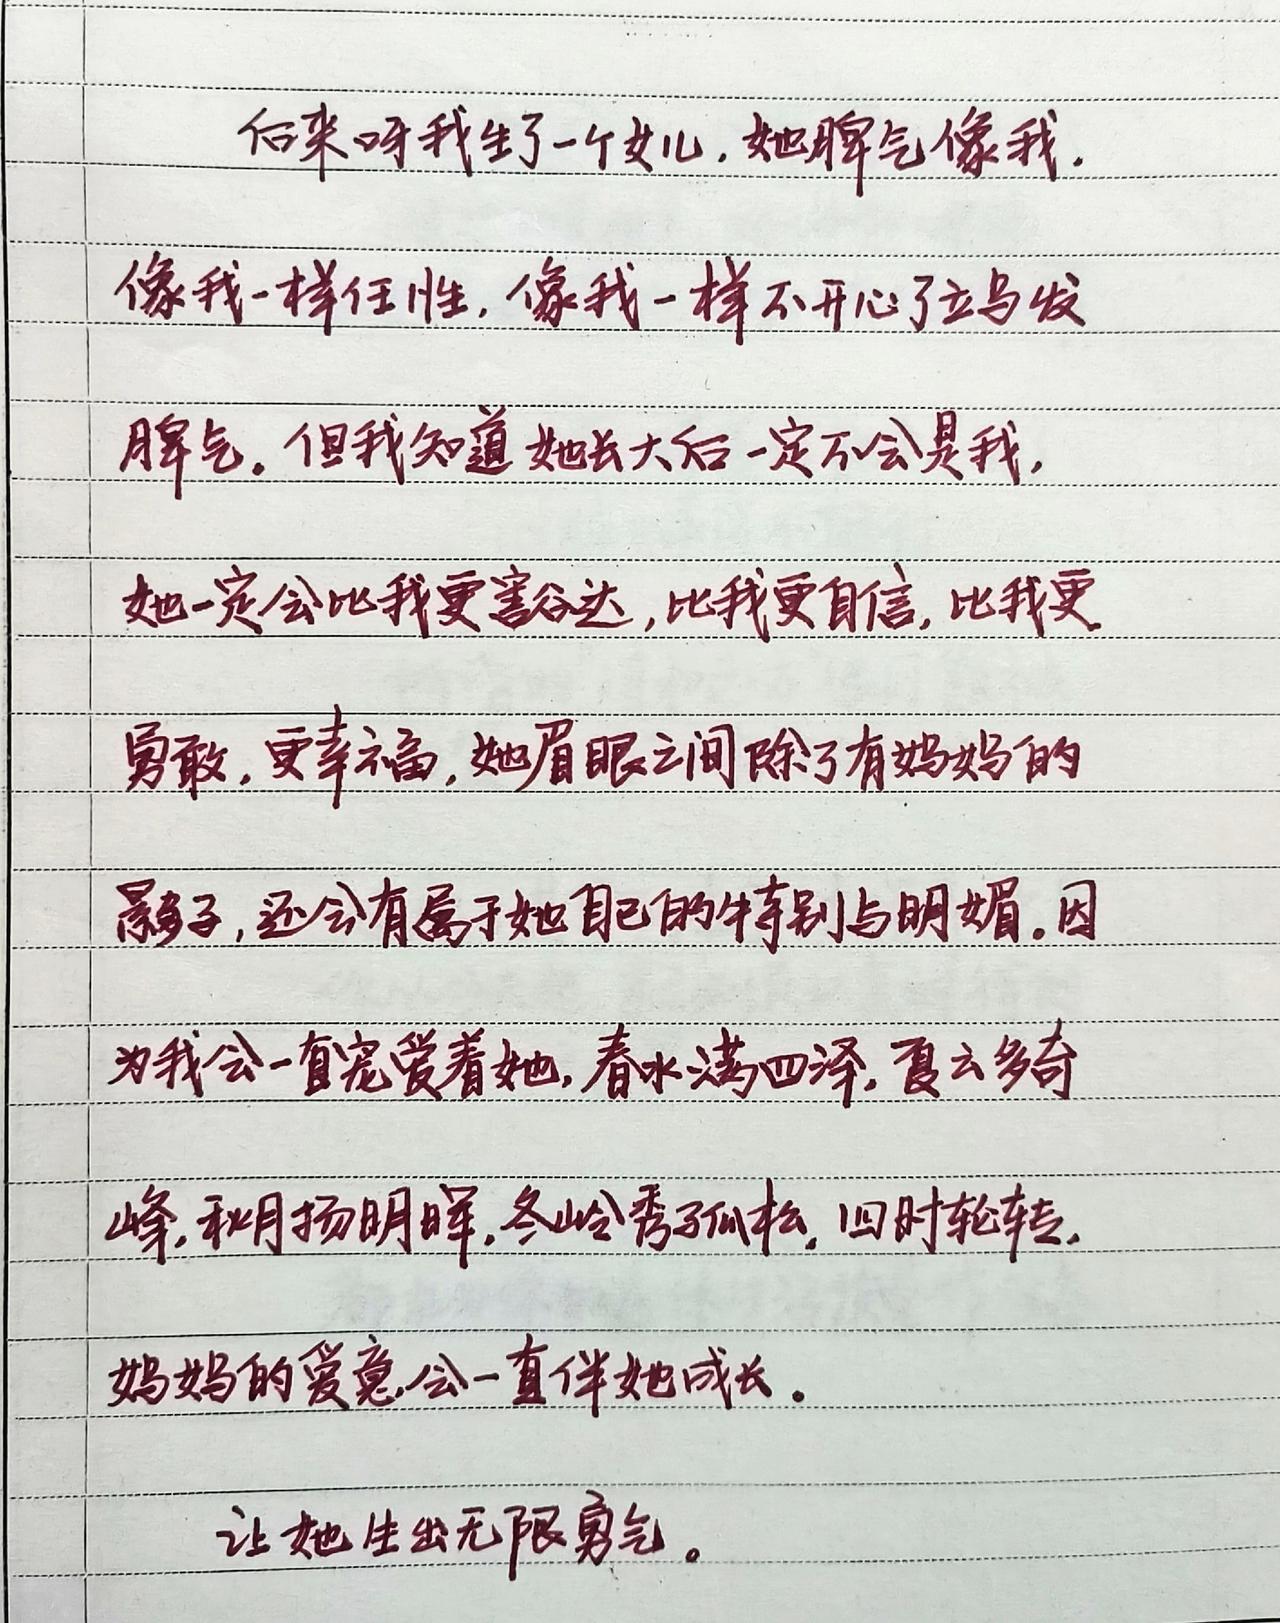 后来呀我生了一个女儿，她脾气像我，
像我一样任性，像我一样不开心了立马发
脾气。但我知道她长大后一定不会是我，
她一定会比我更豁达，比我更自信，比我更
勇敢，更幸福，她眉眼之间除了有妈妈的
影子，还会有属于她自己的特别与明媚。因
为我会一直宠爱着她，春水满四泽，夏云多奇
峰，秋月扬明晖，冬岭秀孤松，四时轮转，
妈妈的爱意，会一直伴她成长。
让她生出无限勇气。